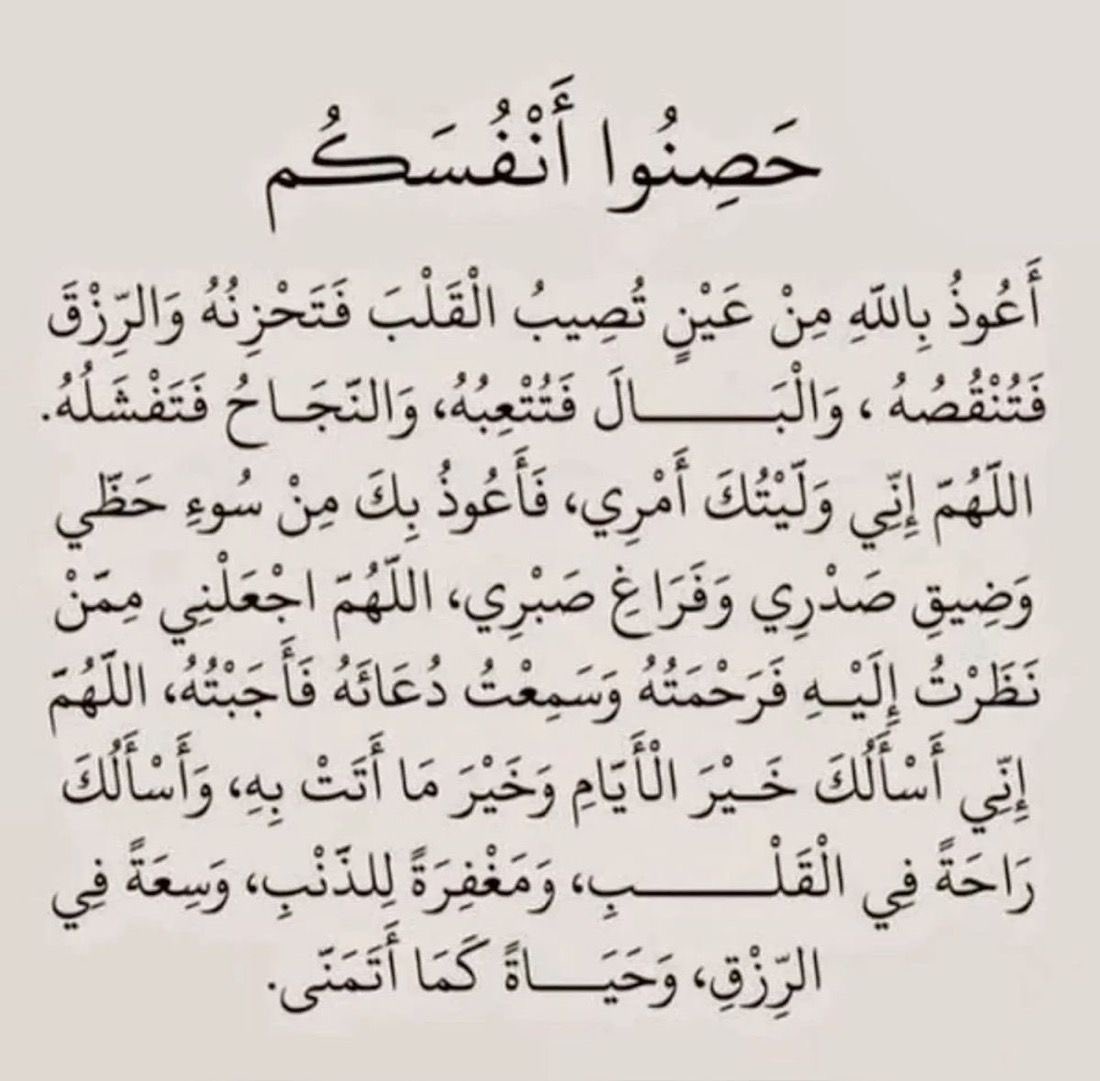 حَصِنُوا أَنْفُسَكُم
أَعُوذُ بِاللّهِ مِنْ عَيْنٍ تُصِيبُ الْقَلْبَ فَتَحْزِنُهُ وَالرِّزْقَ
فَتُنْقُصُهُ ، وَالْبَـــــــالَ فَتُتْعِبُهُ، وَالنَّجَـاحُ فَتَفْشَلُهُ.
اللَّهُمّ إِنِّي وَلَّيْتُكَ أَمْرِي، فَأَعُوذُ بِكَ مِنْ سُوءِ حَظّي
وَضِيقِ صَدْرِي وَفَرَاغِ صَبْرِي، اللَّهُمّ اجْعَلْنِي مِمّنْ
نَظَرْتُ إِلَيْـهِ فَرَحْمَتُهُ وَسَمِعْتُ دُعَائَهُ فَأَجَبْتُهُ، اللَّهُمّ
إِنِّي أَسْأَلُكَ خَـيْرَ الْأَيَّامِ وَخَيْرَ مَا أَتَتْ بِهِ، وَأَسْأَلُكَ
رَاحَةً فِي الْقَلْـــــــبِ، وَمَغْفِرَةً لِلذَّنْبِ، وَسِعَةً فِي
الرِّزْقِ، وَحَيَــــاةً كَمَا أَتَمَنّى.